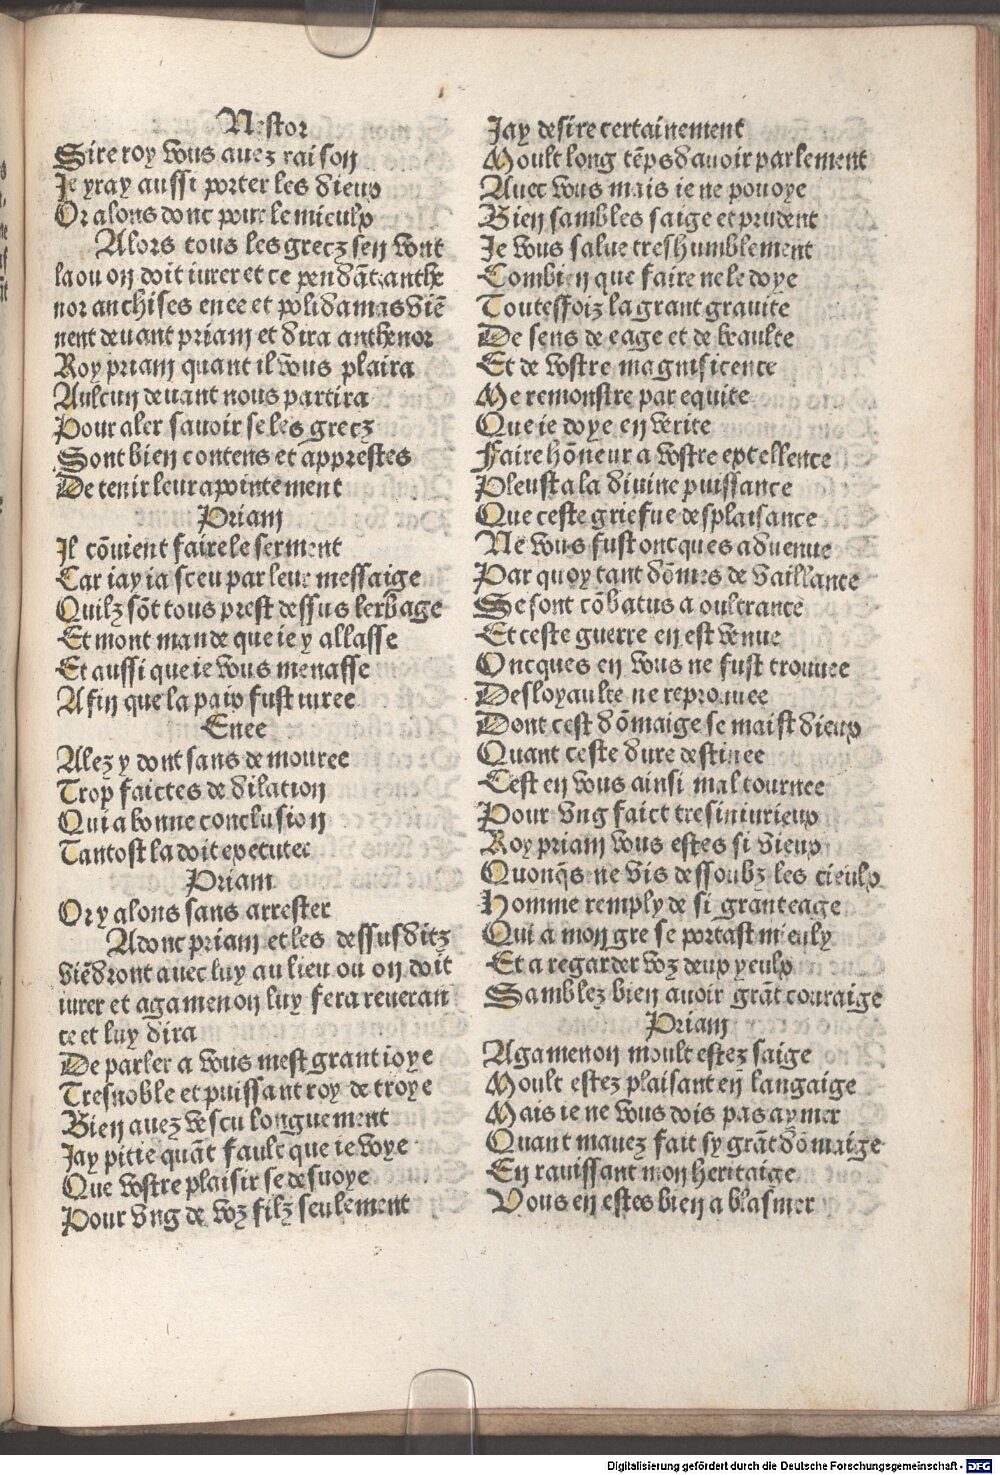 Nestor
Sire roy vous auez raison
Je yray aussi porter les dieux
Or alons donc pour le mieulx
Alors tous les grecz sen vont
la ou on doit iurer et ce pendāt anthe
nor anchises enee et polidamas viē
nent deuant priam et dira anthenor
Roy priam quant il vous plaira
Aulcun deuant nous partira
Pour aler sauoir se les grecz
Sont bien contens et apprestes
De tenir leur apointement
Priam
Il cōuient faire le serment
Car iay ia sceu par leur messaige
Quilz sōt tous prest dessus lerbage
Et mont mande que ie y allasse
Et aussi que ie vous menasse
Afin que la paix fust iuree
Enee
Alez y dont sans demouree
Trop faictes de dilation
Qui a bonne conclusion
Tantost la doit executer
Priam
Or y alons sans arrester
Adonc priam et les dessusditz
viēdront auec luy au lieu ou on doit
iurer et agamenon luy fera reueran
ce et luy dira
De parler a vous mest grant ioye
Tresnoble et puissant roy de troye
Bien auez vescu longuement
Jay pitie quāt fault que ie voye
Que vostre plaisir se desuoye
Pour vng de voz filz seulement
Jay desire certainement
Moult long tēps dauoir parlement
Auec vous mais ie ne pouoye
Bien sambles saige et prudent
Je vous salue treshumblement
Combien que faire ne le doye
Toutesfoiz la grant grauite
De sens de eage et de beaulte
Et de vostre magnificence
Me remonstre par equite
Que ie doye en verite
Faire hōneur a vostre excellence
Pleust a la diuine puissance
Que ceste griefue desplaisance
Ne vous fust oncques aduenue
Par quoy tant dōmes de vaillance
Se sont cōbatus a oultrance
Et ceste guerre en est venue
Oncques en vous ne fust trouuee
Desloyaulte ne reprouuee
Dont cest dōmaige se maist dieux
Quant ceste dure destinee
Cest en vous ainsi mal tournee
Pour vng faict tresiniurieux
Roy priam vous estes si vieux
Quonq̄s ne vis dessoubz les cieulx
Homme remply de si grant eage
Qui a mon gre se portast mieulx
Et a regarder voz deux yeulx
Samblez bien auoir grāt couraige
Priam
Agamenon moult estez saige
Moult estez plaisant en langaige
Mais ie ne vous dois pas aymer
Quant mauez fait sy grāt dōmaige
En rauissant mon heritaige
Vous en estes bien a blasmer
Digitalisierung gefördert durch die Deutsche Forschungsgemeinschaft - DFG